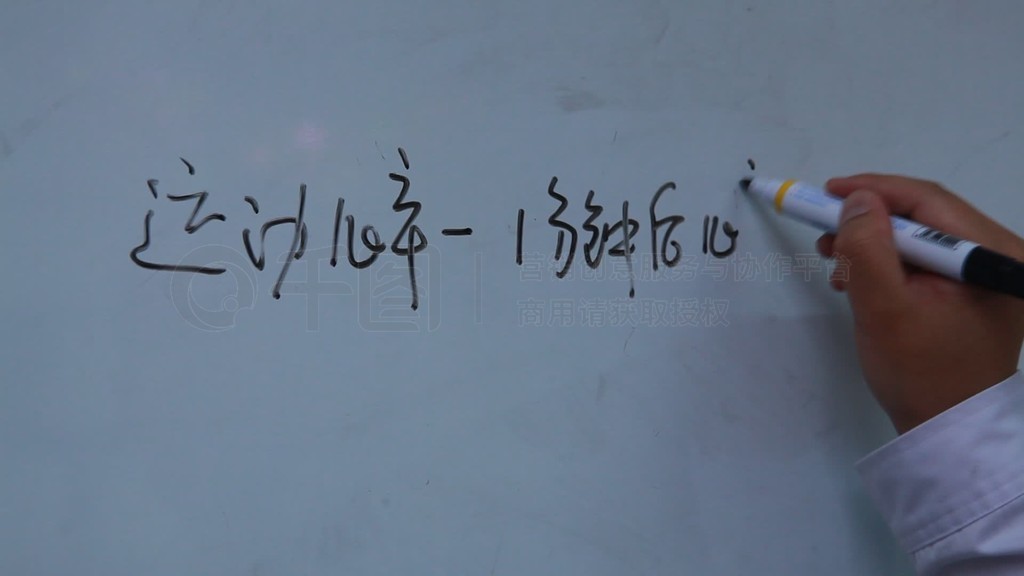 运动心率-1分钟后心
千图
营销创意服务与协作平台
商用请获取授权